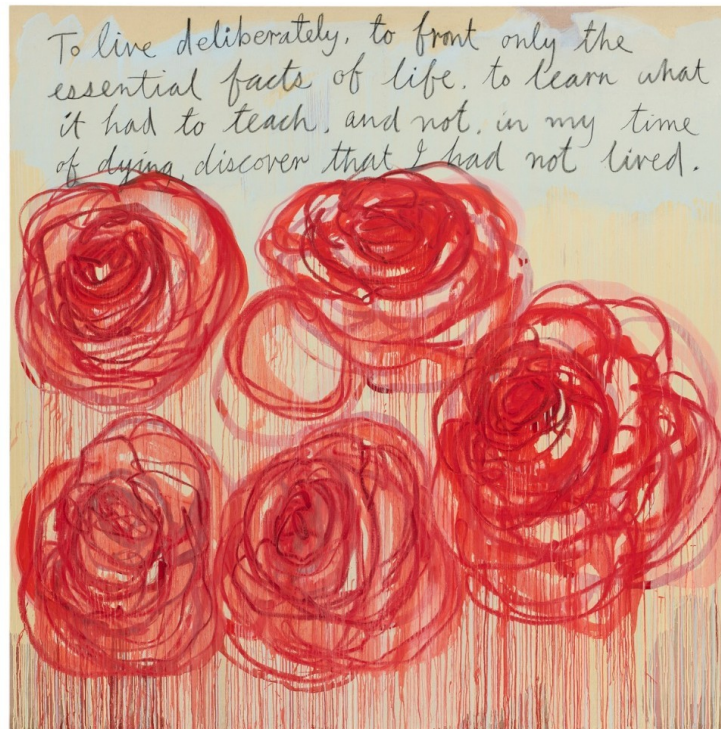 To live deliberately, to front only the
essential facts of life, to learn what
it had to teach, and not, in my time
of dying, discover that I had not lived.